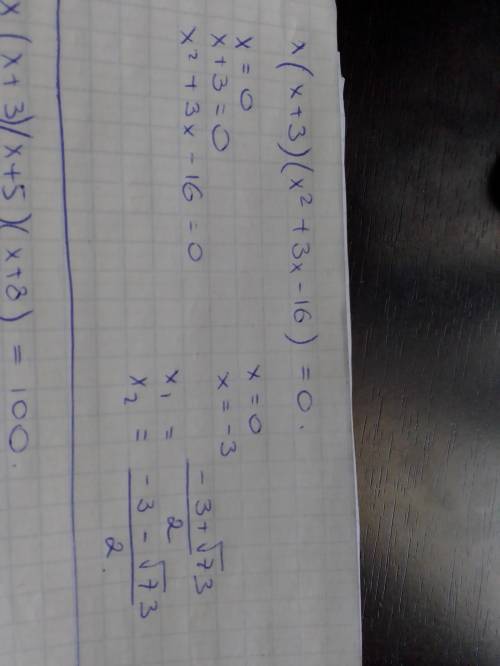 x(x+3)(x²+3x-16)=0.
x=0
x+3=0
x²+3x-16=0
x=0
x=-3
x₁ = (-3+√73)/2
x₂ = (-3-√73)/2.
x(x+3)(x+5)(x+8)=100.